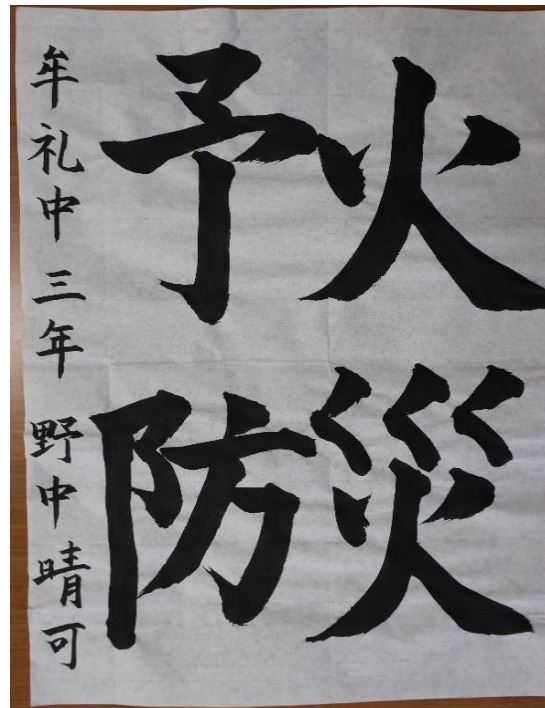 火災
予防
牟礼中三年 野中晴可